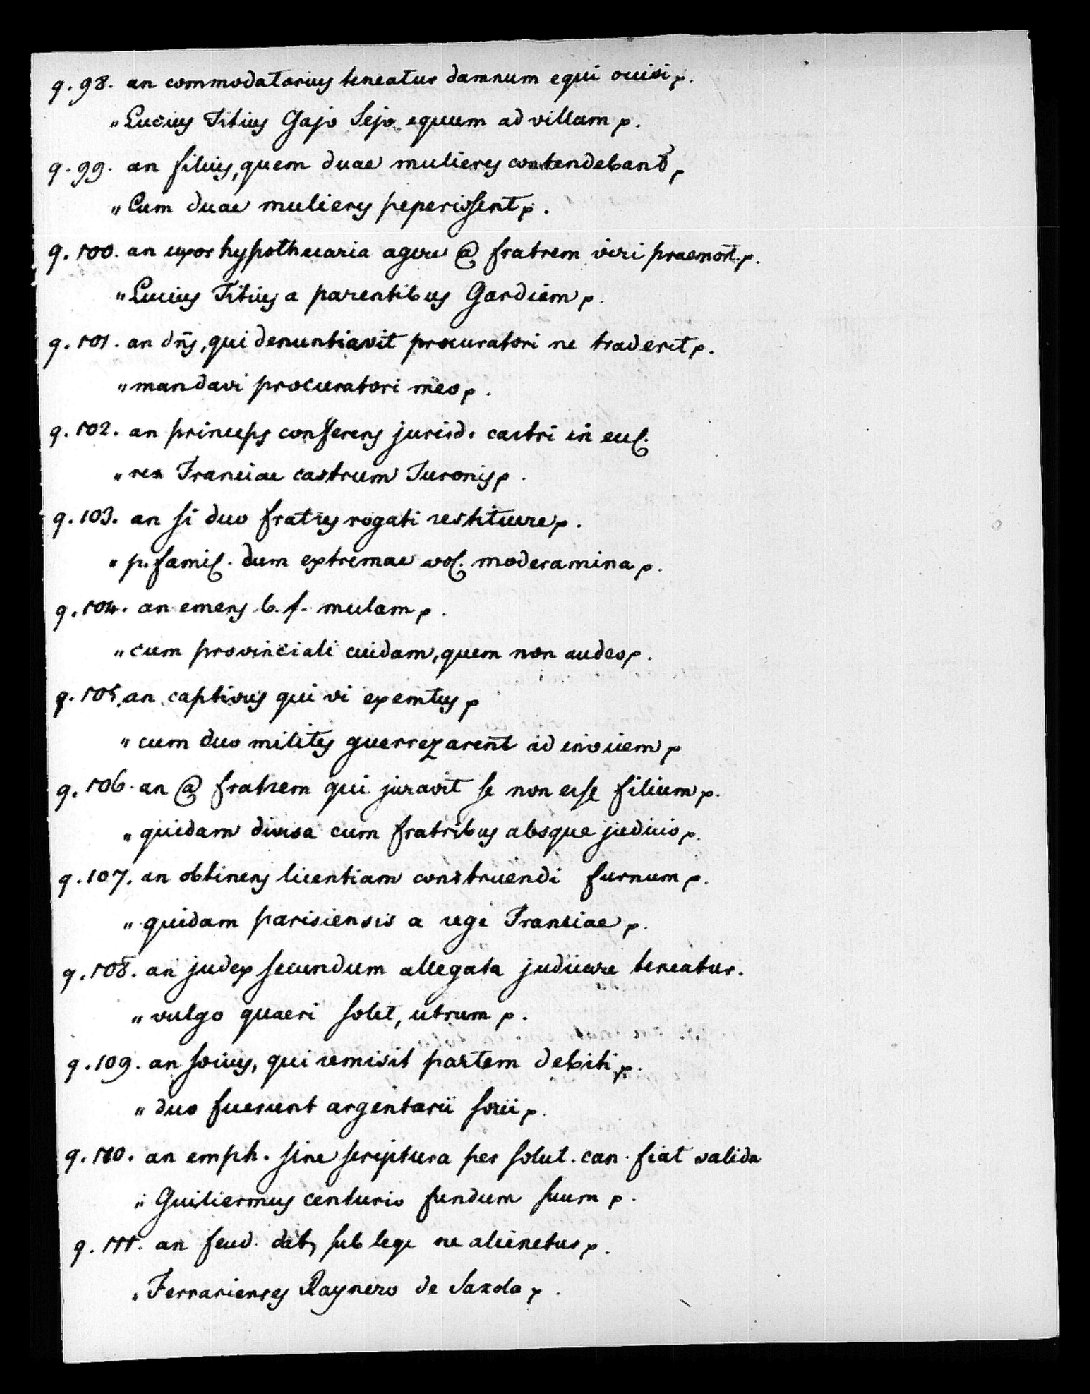 q. 98. an commodatarius teneatur damnum equi occisi p.
„ Lucius Titius Gajo Sejo equum ad villam p.
q. 99. an filius, quem duae mulieres contendebant p
„ Cum duae mulieres peperissent p.
q. 100. an uxor hypothecaria agere @ fratrem viri praemort. p.
„ Lucius Titius a parentibus p.
q. 101. an dns, qui denuntiavit procuratori ne traderet p.
„ mandavi procuratori meo p.
q. 102. an princeps conferens jurisd. castri in
„ rex Franciae castrum Turonis p.
q. 103. an si duo fratres rogati restituere p.
„ p. famil. dum extremae vol. moderamina p.
q. 104. an emens b. f. mulam p.
„ cum provinciali cuidam, quem non audeo p.
q. 105. an captivus qui vi exemtus p
„ cum duo milites guerrezarent ad invicem p
q. 106. an @ fratrem qui juravit se non esse filium p.
„ quidam divisa cum fratribus absque judicio p.
q. 107. an obtinens licentiam construendi furnum p.
„ quidam parisiensis a rege Franciae p.
q. 108. an judex secundum allegata judicare teneatur.
„ vulgo quaeri solet, utrum p.
q. 109. an socius, qui remisit partem debiti p.
„ duo fuerunt argentarii socii p.
q. 110. an emph. sine scriptura per solut. can. fiat valida
„ Guiliermus centurio fundum suum p.
q. 111. an feud. dat, sub lege ne alienetur p.
„ Ferrarienses Raynero de Saxola p.